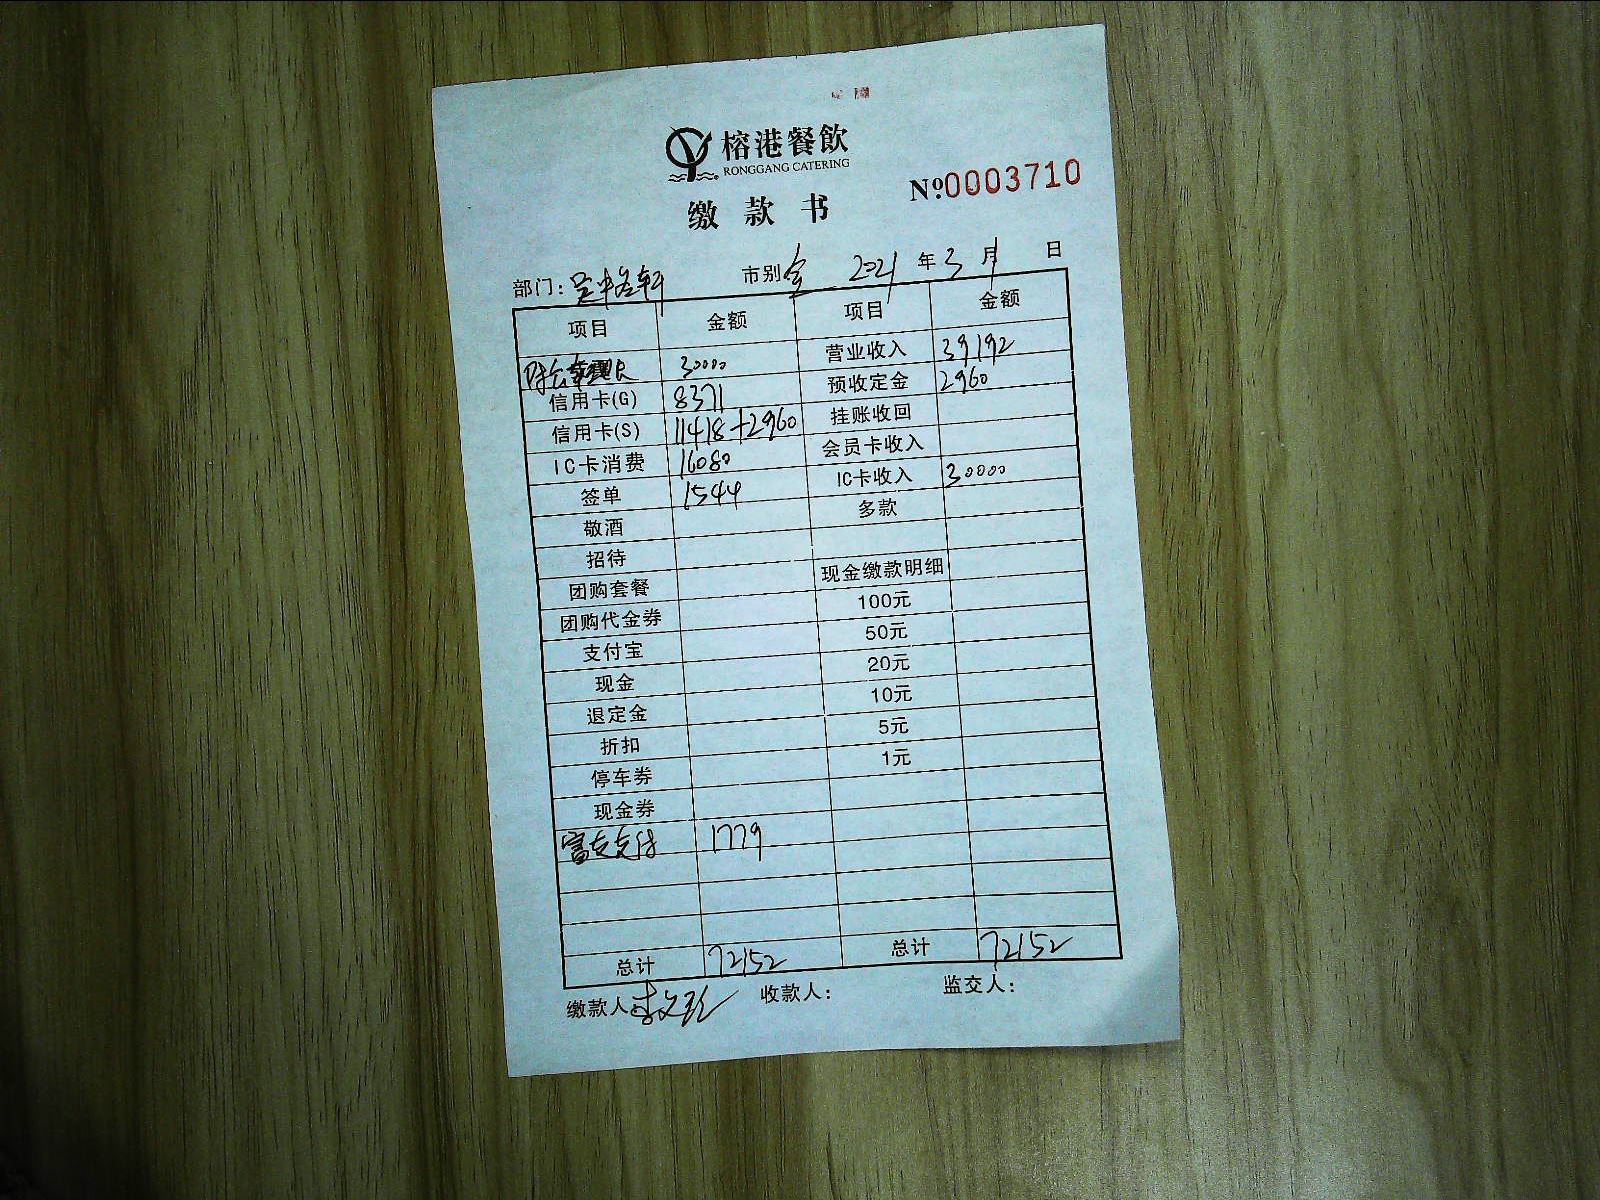 榕港餐飲
RONGGANG CATERING
Nº.0003710
缴款书
部门: 市别 全 2021 年 3 月 日
项目 金额 项目 金额
30000 营业收入 39192
信用卡(G) 8371 预收定金 2960
信用卡(S) 11418+2960 挂账收回
IC卡消费 16080 会员卡收入
签单 1544 IC卡收入 30000
敬酒 多款
招待
团购套餐 现金缴款明细
团购代金券 100元
支付宝 50元
现金 20元
退定金 10元
折扣 5元
停车券 1元
现金券
富友支付 1779
总计 72152 总计 72152
缴款人 收款人: 监交人: